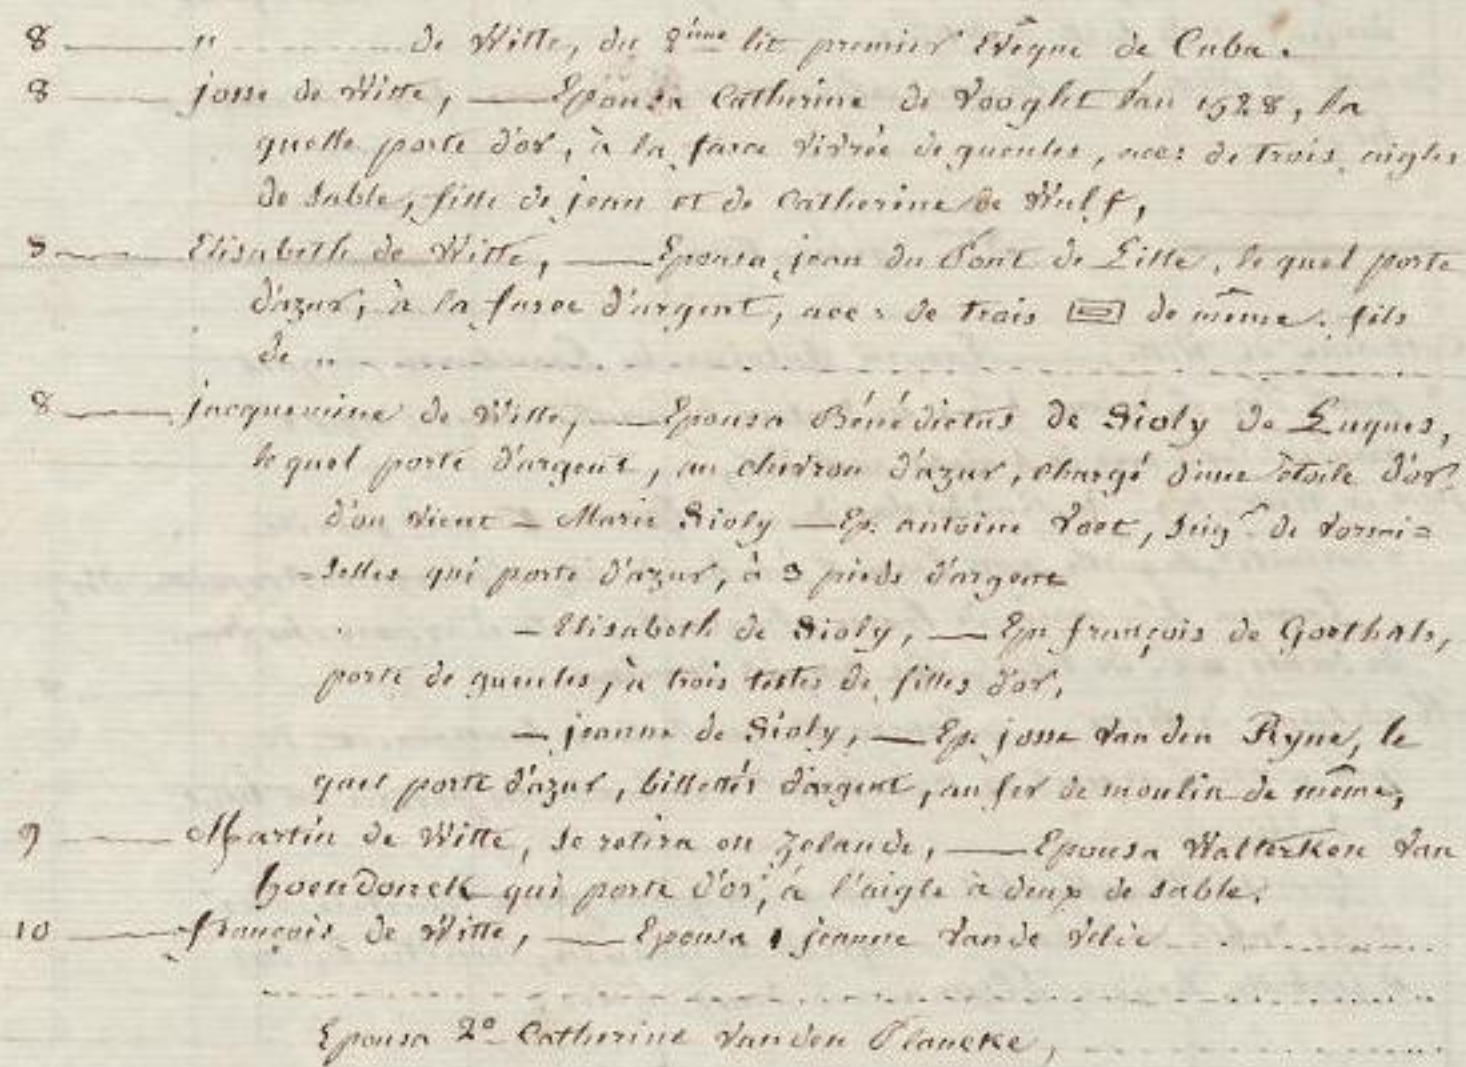 8 — " ........ de Witte, du 2ème lit premier Evêque de Cuba.
8 — josse de Witte, — Epousa Catherine de Vooght l'an 1528, la
quelle porte d'or, à la fasce vivrée de gueules, acc: de trois aigles
de sable, fille de jean et de Catherine de Wulf,
8 — Elisabeth de Witte, — Epousa jean du Pont de Lille, le quel porte
d'azur, à la fasce d'argent, acc: de trois de même. fils
de " ........
8 — jacquemine de Witte, — Epousa Bénédictus de Sioly de Luques,
le quel porte d'argent, au chevron d'azur, chargé d'une étoile d'or
d'ou vient — Marie Sioly — Ep. antoine Voet, seigr. de Vorssi=
=selles qui porte d'azur, à 3 pieds d'argent
— Elisabeth de Sioly, — Ep. françois de Goethals,
porte de gueules, à trois testes de filles d'or,
— jeanne de Sioly, — Ep. josse Van den Ryne, le
quel porte d'azur, billettés d'argent, au fer de moulin de même,
9 — Martin de Witte, se retira en Zelande, — Epousa Walterken Van
hoendonck qui porte d'or, à l'aigle à deux de sable.
10 — françois de Witte, — Epousa 1 jeanne Van de Velde ........
........
Epousa 2° Catherine Van den Plancke, ........